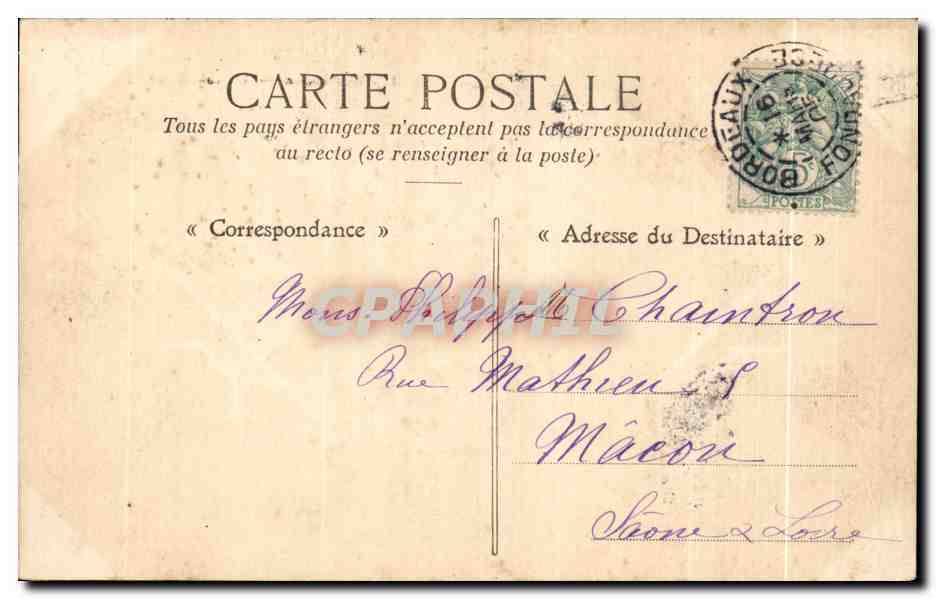 CARTE POSTALE
Tous les pays étrangers n'acceptent pas la correspondance
au recto (se renseigner à la poste)
« Correspondance »
« Adresse du Destinataire »
Mons. Philippe Chaintron
Rue Mathieu 5
Mâcon
Saône & Loire
BORDEAUX
16
MAI
5c
POSTES
CPAPHIL